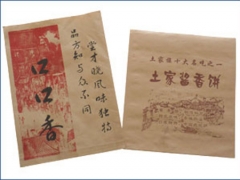 尝才晓风味独特
品方知与众不同
口口香
土家族十大名吃之一
土家酱香饼